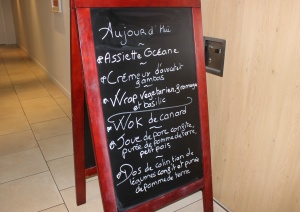 Aujourd'Hui
~
Assiette Océane
~
Crémeux d'avocat
gambas
~
Wrap vegetarien, fromage
et basilic
~
Wok de canard
~
Joue de porc confite,
purée de pomme de terre,
petit pois
~
Dos de colin tian de
légumes confit et purée
de pomme de terre